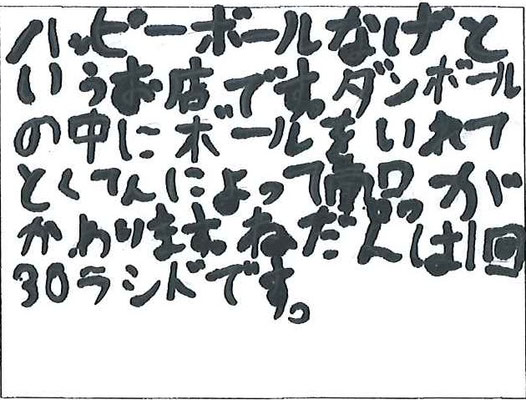 ハッピーボールなげと
いうお店です。ダンボール
の中にボールをいれて
とくてんによって商品が
かわります。ねだんは1回
30ランドです。